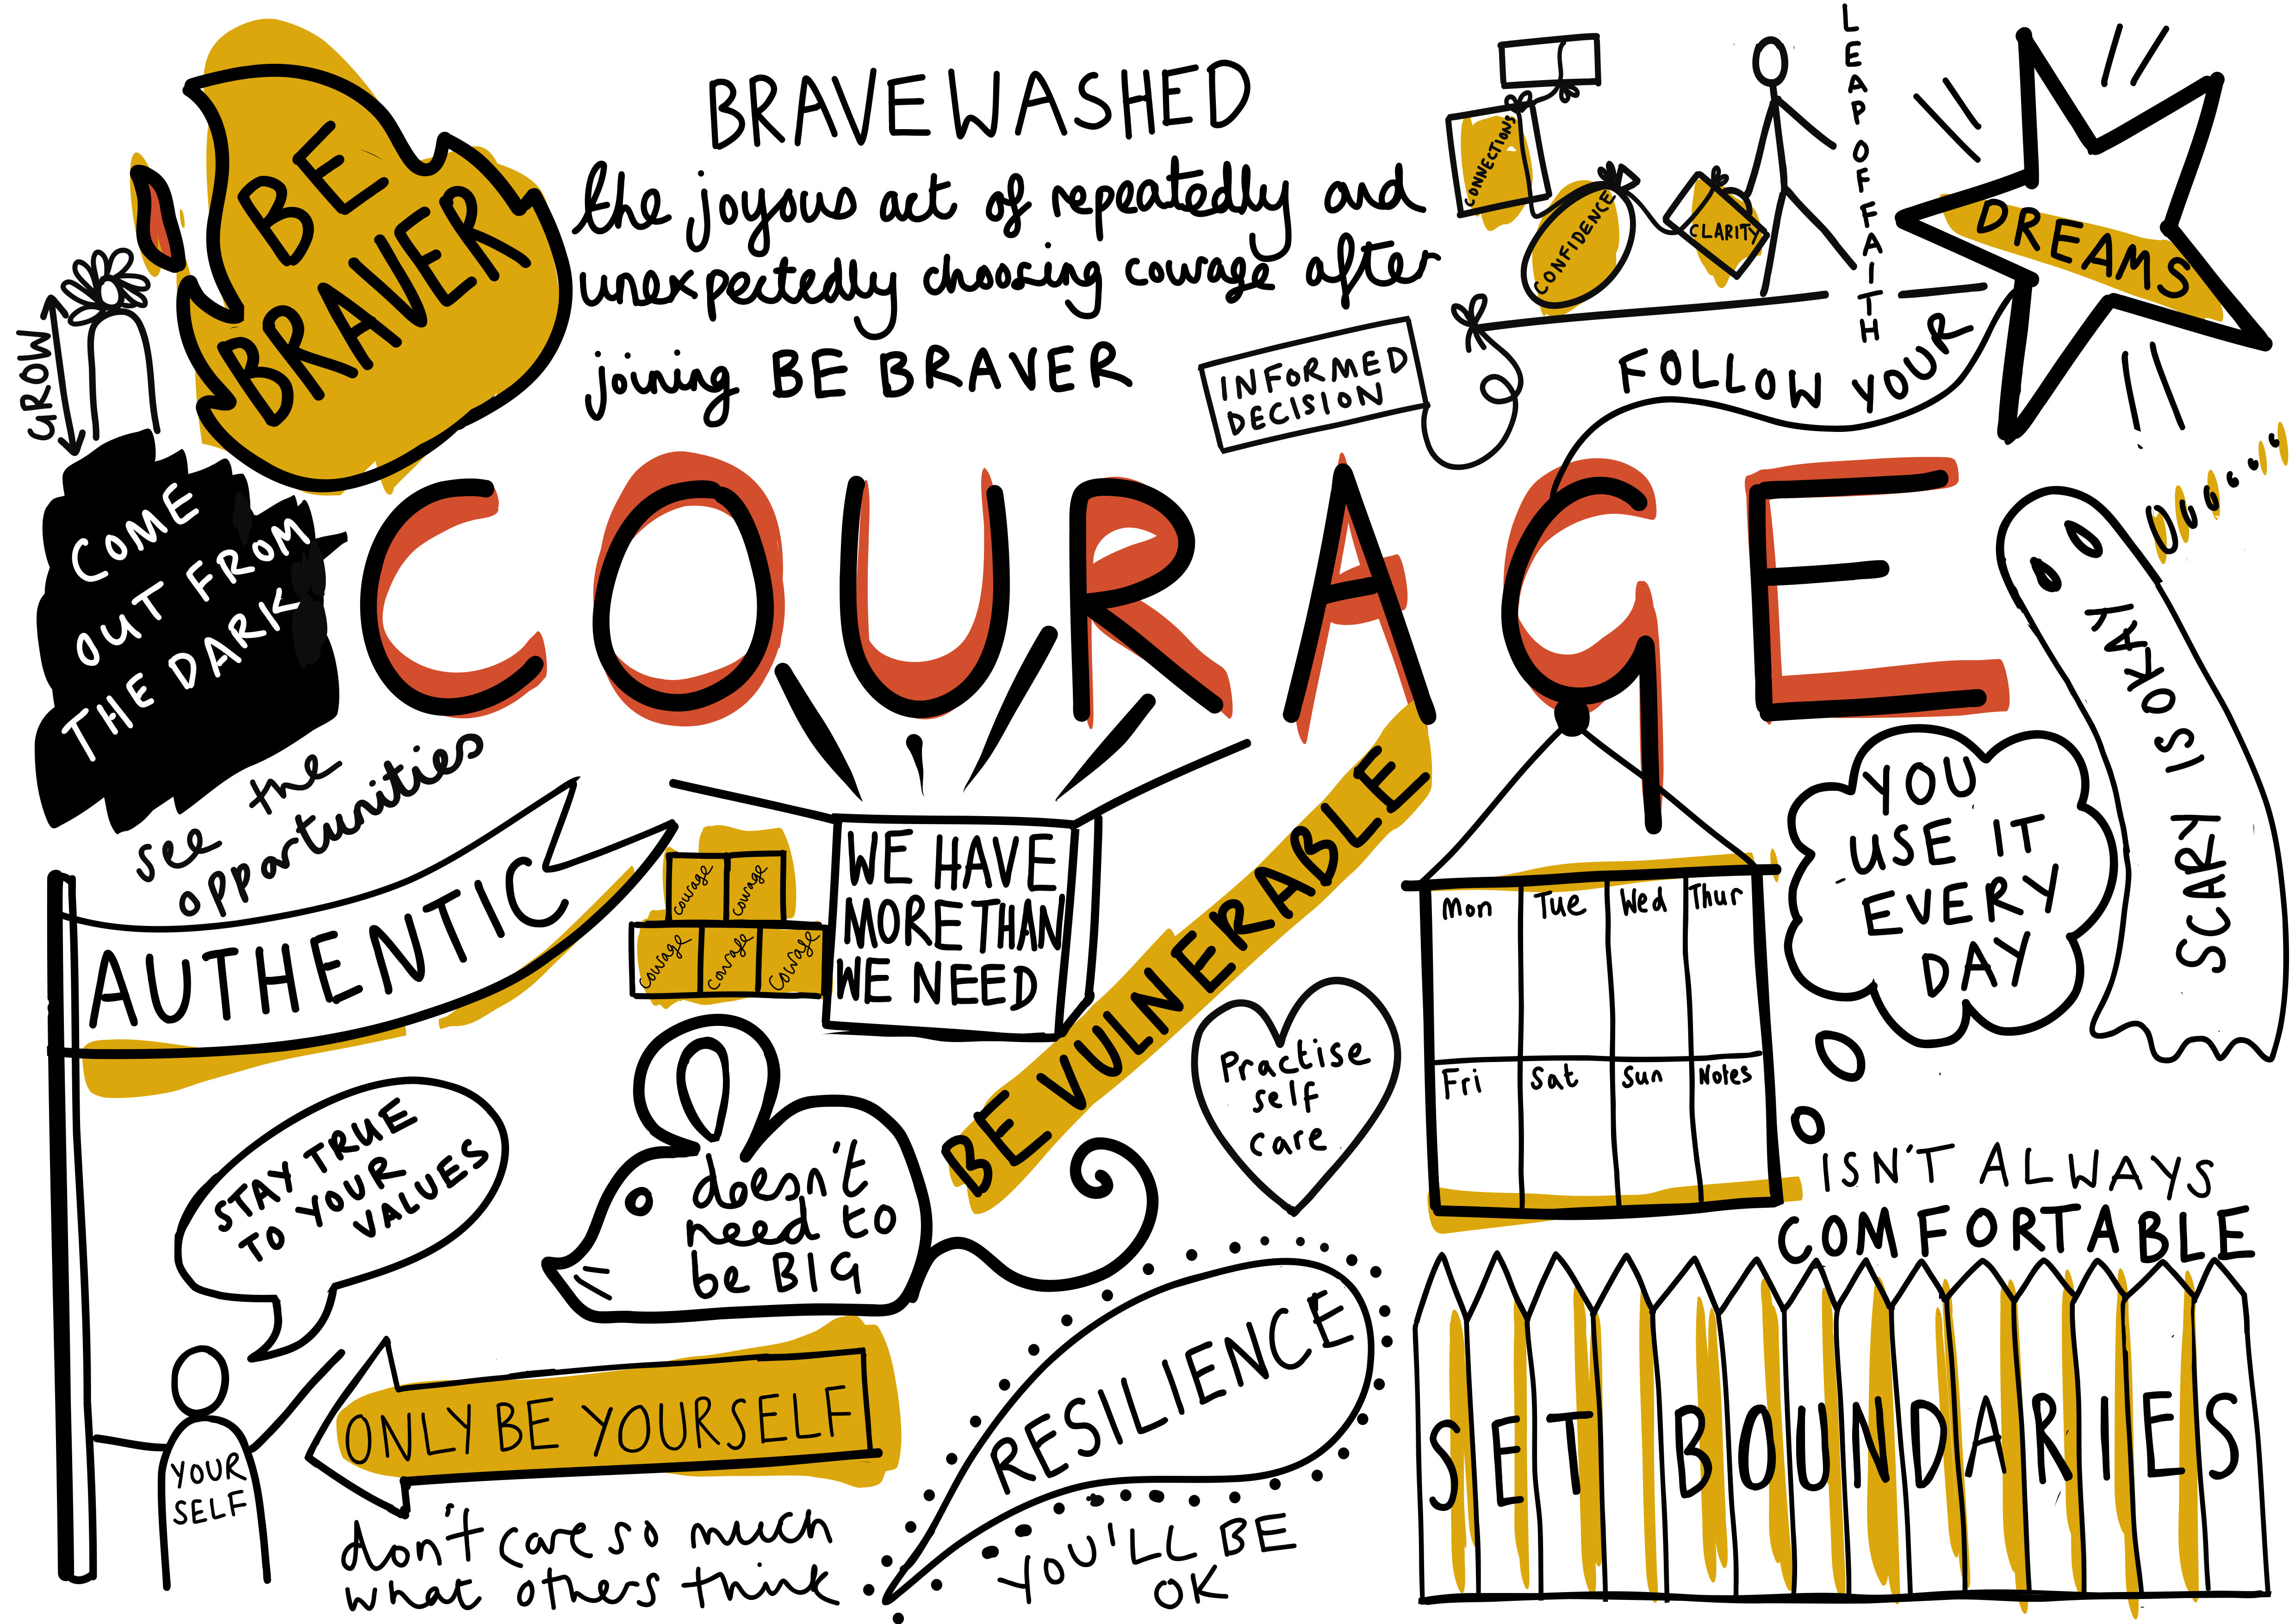 BE
BRAVER
BRAVEWASHED
the joyous act of repeatedly and
unexpectedly choosing courage after
joining BE BRAVER
CONNECTIONS
CONFIDENCE
CLARITY
LEAP OF FAITH
INFORMED
DECISION
FOLLOW YOUR
DREAMS
GROW
COME
OUT FROM
THE DARK
see the
opportunities
COURAGE
SCARY IS OKAY
YOU
USE IT
EVERY
DAY
AUTHENTIC
courage
courage
courage
courage
courage
WE HAVE
MORE THAN
WE NEED
BE VULNERABLE
Practise
self
care
Mon
Tue
Wed
Thur
Fri
Sat
Sun
Notes
ISN'T ALWAYS
COMFORTABLE
STAY TRUE
TO YOUR
VALUES
doesn't
need to
be BIG
YOUR
SELF
ONLY BE YOURSELF
don't care so much
what others think
RESILIENCE
YOU'LL BE
OK
SET BOUNDARIES